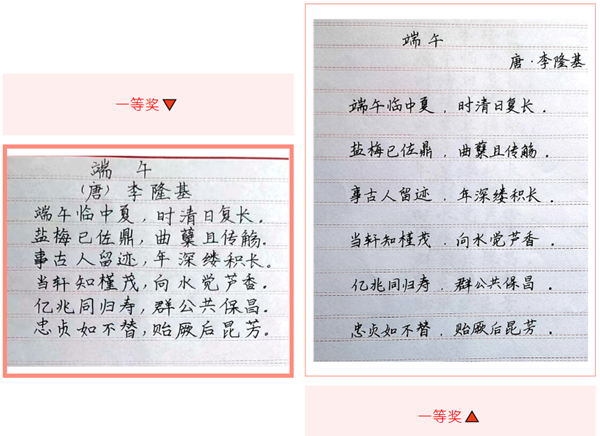 一等奖
端 午
（唐）李隆基
端午临中夏，时清日复长．
盐梅已佐鼎，曲糵且传觞．
事古人留迹，年深缕积长．
当轩知槿茂，向水觉芦香．
亿兆同归寿，群公共保昌．
忠贞如不替，贻厥后昆芳．
端 午
唐·李隆基
端午临中夏．时清日复长．
盐梅已佐鼎．曲糵且传觞．
事古人留迹．年深缕积长．
当轩知槿茂．向水觉芦香．
亿兆同归寿．群公共保昌．
忠贞如不替．贻厥后昆芳．
一等奖